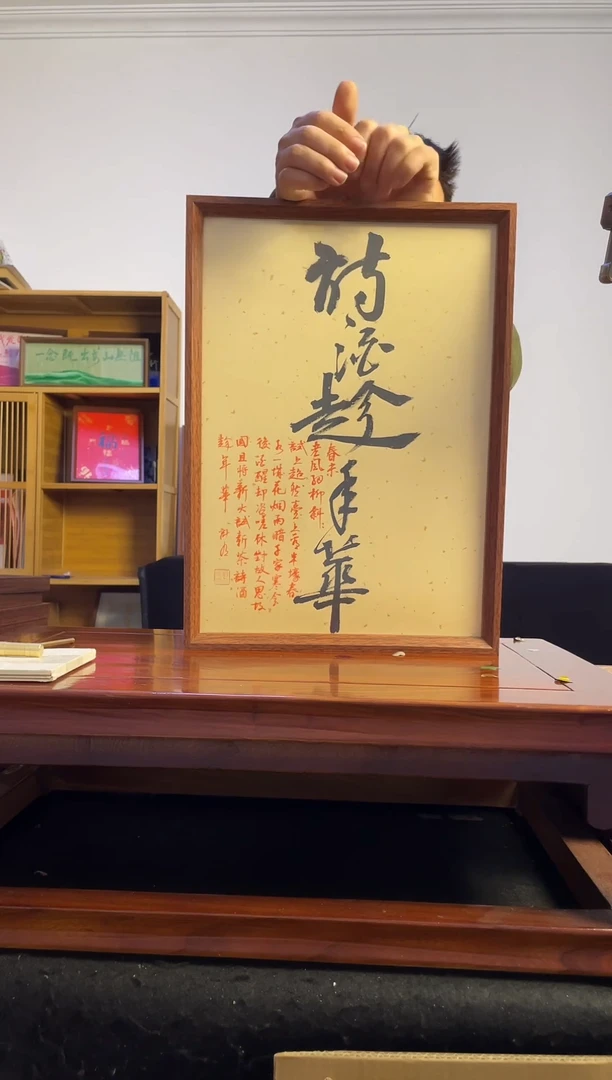 詩酒趁年華
春未
老風細柳斜〻
試上超然臺上看半壕春
水一城花烟雨暗千家寒食
後酒醒却咨嗟休對故人思故
國且將新火試新茶詩酒
趁年華
一念既出万山无阻